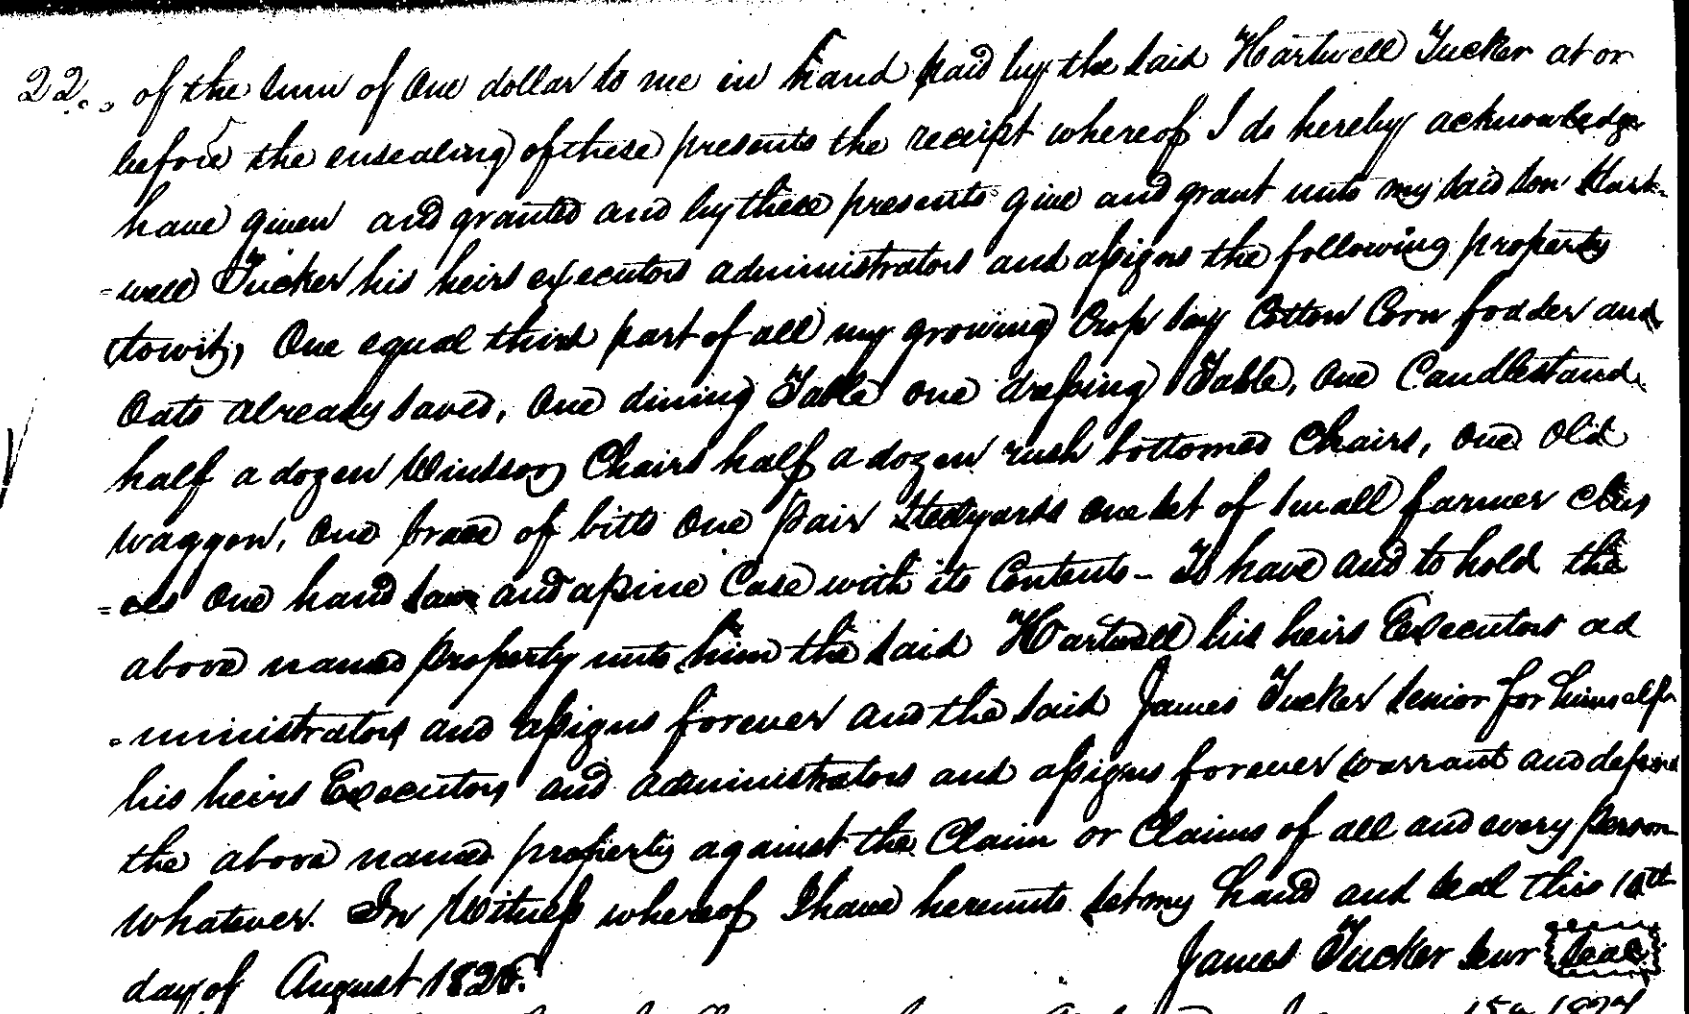 22.. of the sum of One dollar to me in hand paid by the said Hartwell Tucker at or
before the ensealing of these presents the receipt whereof I do hereby acknowledge
have given and granted and by these presents give and grant unto my said son Hart-
-well Tucker his heirs executors administrators and assigns the following property
(towit, One equal third part of all my growing Crop say Cotton Corn fodder and
Oats already saved, One dining Table one dressing Table, One Candlestand,
half a dozen Windsor Chairs half a dozen rush bottomed Chairs, one old
waggon, One brace of bitts One pair Steelyards one set of small farmer
One hand saw and a pine Case with its Contents - To have and to hold the
above named property unto him the said Hartwell his heirs Executors ad
-ministrators and assigns forever and the said James Tucker Senior for himself
his heirs Executors and administrators and assigns forever warrant and defend
the above named property against the Claim or Claims of all and every person
whatever. In Witness whereof I have hereunto set my hand and seal this 10th
day of August
James Tucker Senr Seal